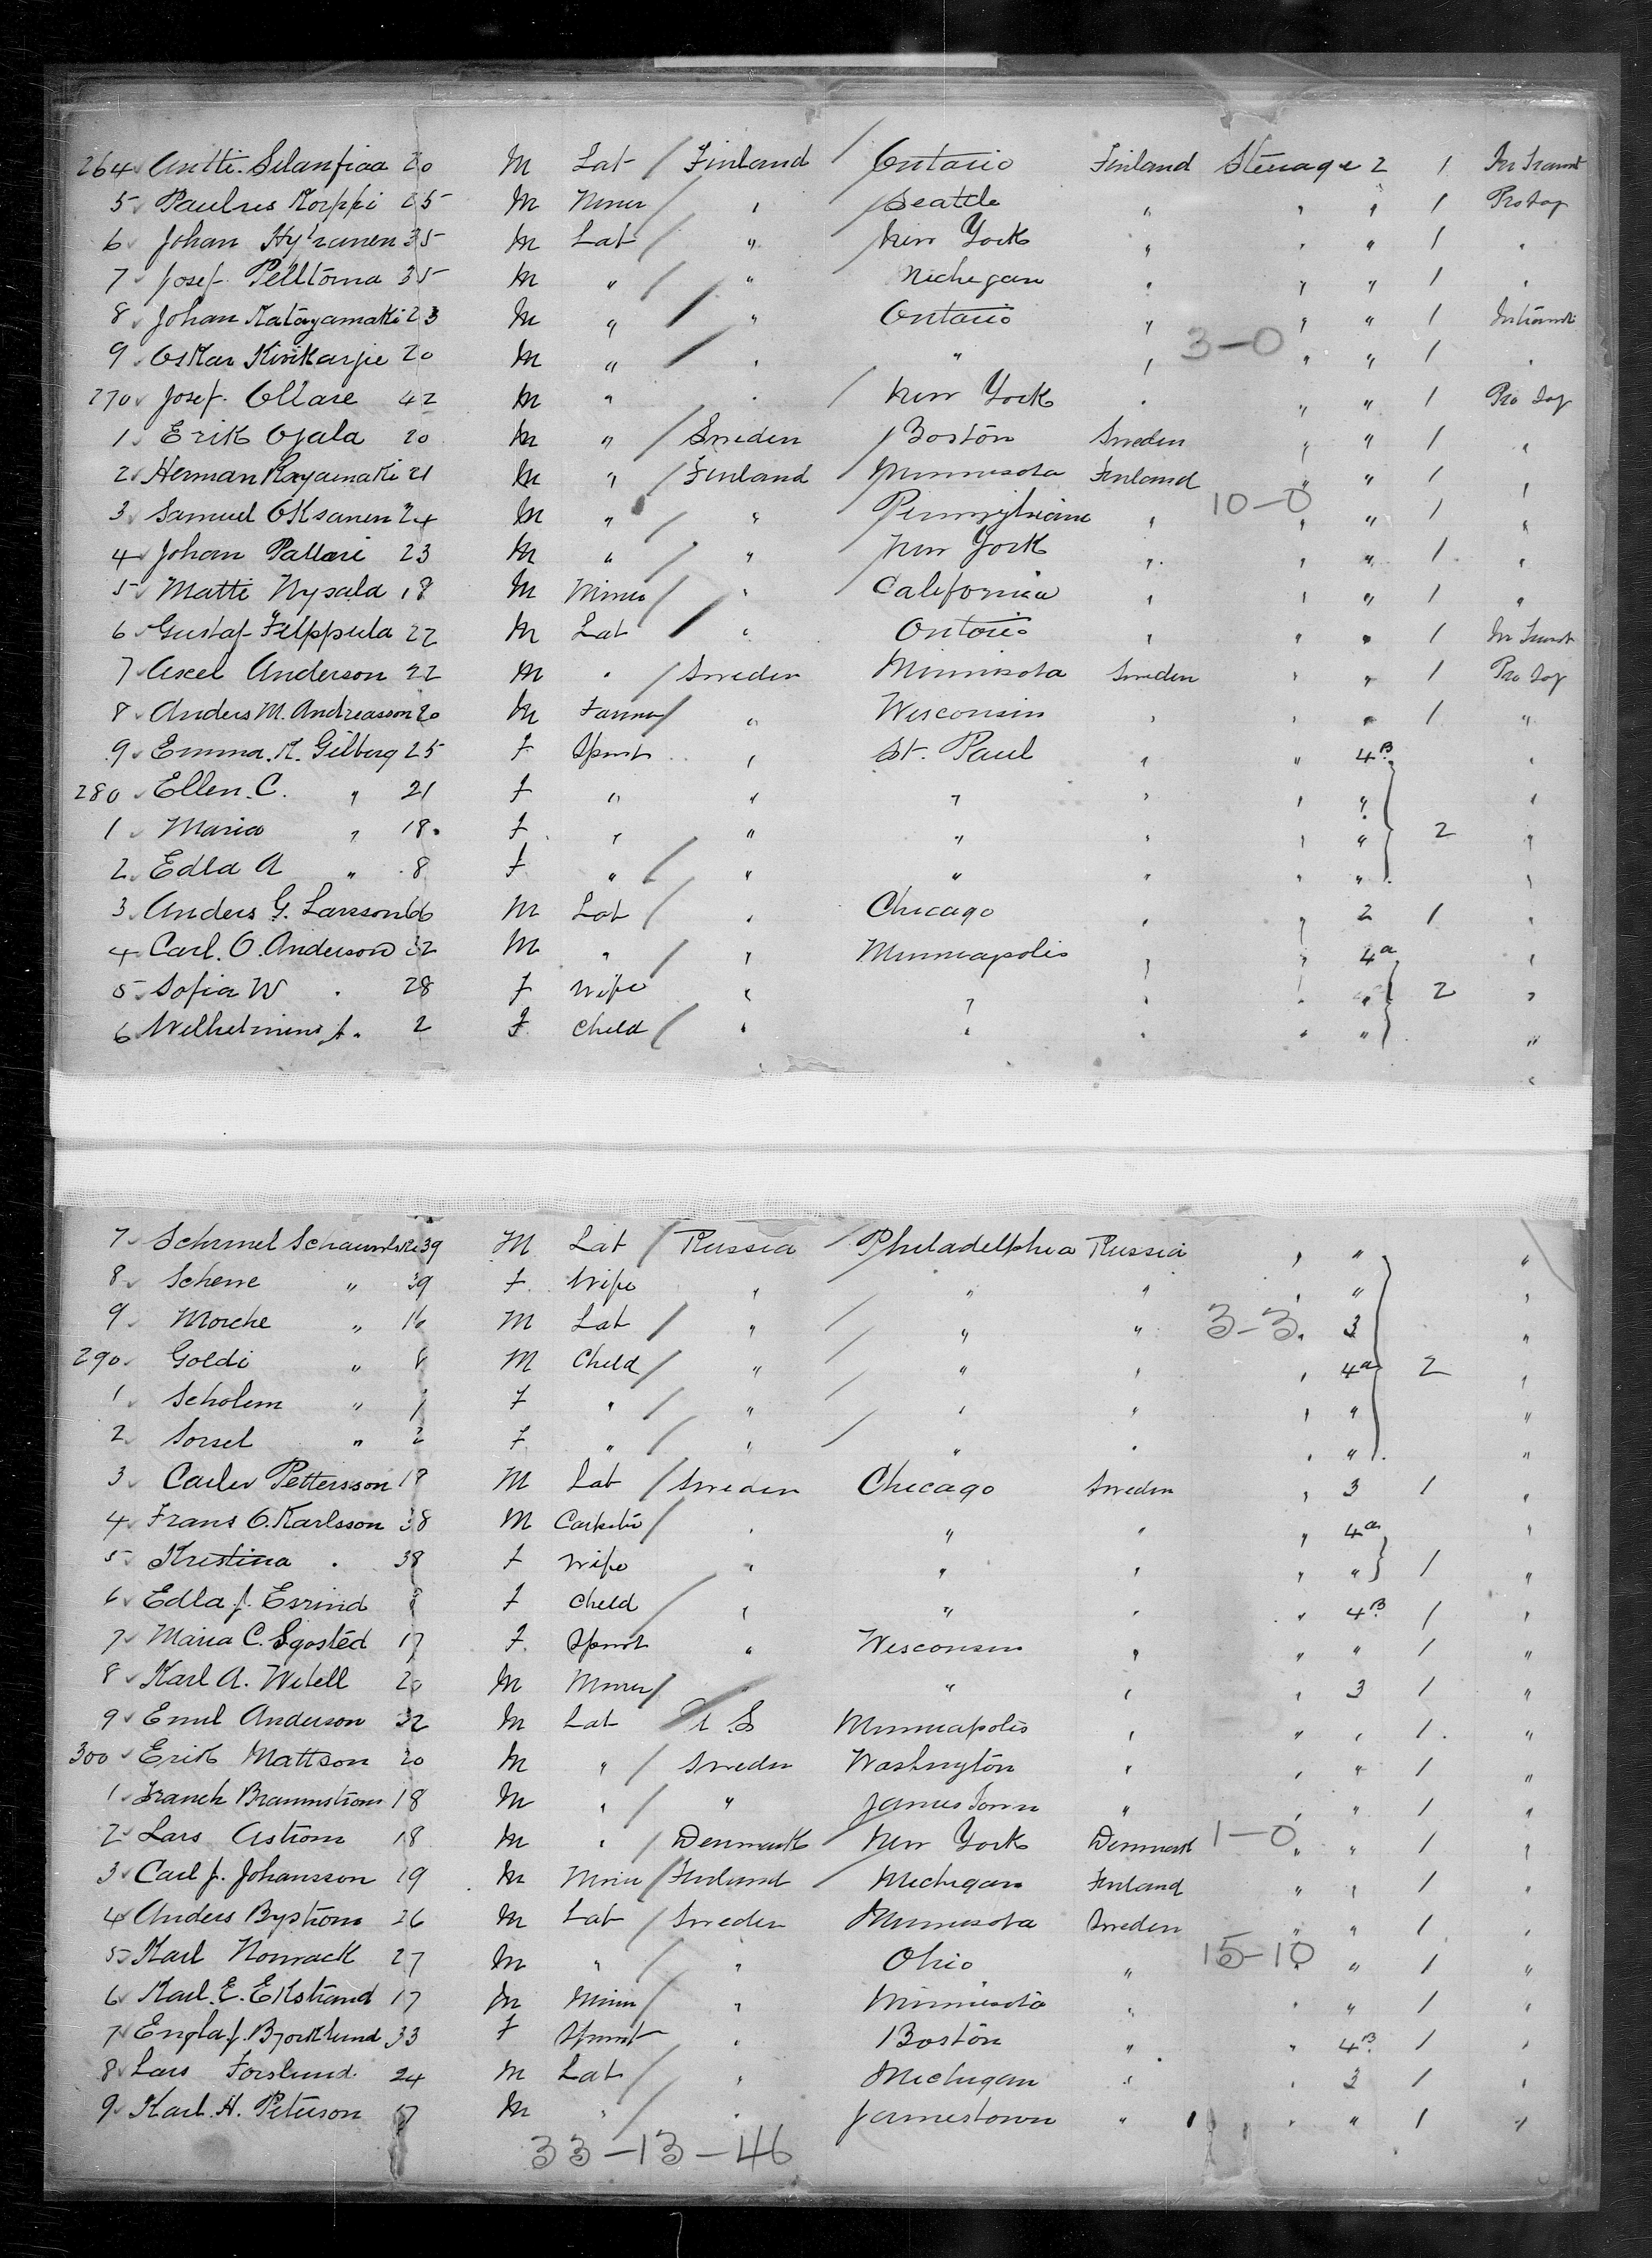 264 Antti. Silanpiaa 20 M Lab / Finland / Ontario Finland Steerage 2 1 In Transit
5 Paulus Korppi 25 M Miner / " / Seattle " " " 1 Pro Log
6 Johan Hytranen 35 M Lab / " New York " " " 1 "
7 Josef Pelltoma 35 M " / " Michegan " " " 1 "
8 Johan Katayamaki 23 M " / " Ontario " " " 1 In transit
9 Oskar Kivikarjie 20 M " / " " " 3-0 " " 1 "
270 Josef. Ollare 42 M " " / New York " " " 1 Pro Log
1 Erik Ojala 20 M " / Sweden / Boston Sweden " " 1 "
2 Herman Rayamaki 21 M " / Finland / Minnesota Finland " " 1 "
3 Samuel Oksanen 24 M " / " Pennsylvania " 10-0 " " 1 "
4 Johan Pallari 23 M " / " New York " " " 1 "
5 Matti Nysala 18 M Miner / " California " " " 1 "
6 Gustaf Filppula 22 M Lab / " Ontario " " " 1 In Transit
7 Axel Anderson 22 M " / Sweden Minnisota Sweden " " 1 Pro Log
8 Anders M. Andreasson 20 M Farmer / " Wisconsin " " " 1 "
9 Emma. K. Gilberg 25 F Spinst " St. Paul " " 4B "
280 Ellen. C. " 21 F " " " " " " "
1 Maria " 18 F " " " " " " 2 "
2 Edla A " 8 F " / " " " " " "
3 Anders G. Larsson 66 M Lab / " Chicago " " 2 1 "
4 Carl. O. Anderson 32 M " / " Minneapolis " " 4a "
5 Sofia W " 28 F Wife " " " " " 2 "
6 Wilhelmina J. 2 F Child / " " " " " "
7 Schmul 39 M Lab / Russia / Philadelphia Russia " " "
8 Schene " 39 F Wife " " " " " "
9 Morche " 16 M Lab / " / " " 3-3 " 3 "
290 Goldi " 8 M Child / " / " " " 4a 2 "
1 Scholem " F " / " / " " " " "
2 Sorsel " 2 F " / " / " " " " "
3 Carlev Pettersson 19 M Lab / Sweden Chicago Sweden " 3 1 "
4 Frans O. Karlsson 38 M / " " " " 4a "
5 Kristina " 38 F Wife " " " " " 1 "
6 Edla J. Esrind F Child / " " " " 4B 1 "
7 Maria C. Sjosted 17 F Spinst " Wisconsin " " " 1 "
8 Karl A. Witell 20 M Miner / " " " " 3 1 "
9 Emil Anderson 32 M Lab U. S Minneapolis " " " 1 "
300 Erik Mattson 20 M " / Sweden Washington " " " 1 "
1 Franck Brannstrom 18 M " / " Jamestown " " " 1 "
2 Lars Astrom 18 M " / Denmark / New York Denmark 1-0 " " 1 "
3 Carl J. Johansson 19 M Miner / Finland / Michegan Finland " " 1 "
4 Anders Bystrom 26 M Lab / Sweden Minnesota Sweden " " 1 "
5 Karl Nonrack 27 M " / " Ohio " 15-10 " " 1 "
6 Karl. E. Ekstrand 17 M Miner / " Minnisota " " " 1 "
7 Engla J. Bjorklund 33 F Spinst " Boston " " 4B 1 "
8 Lars Forslund 24 M Lab / " Michigan " " 3 1 "
9 Karl. H. Peterson 17 M " / " Jamestown " " " 1 "
33-13-46